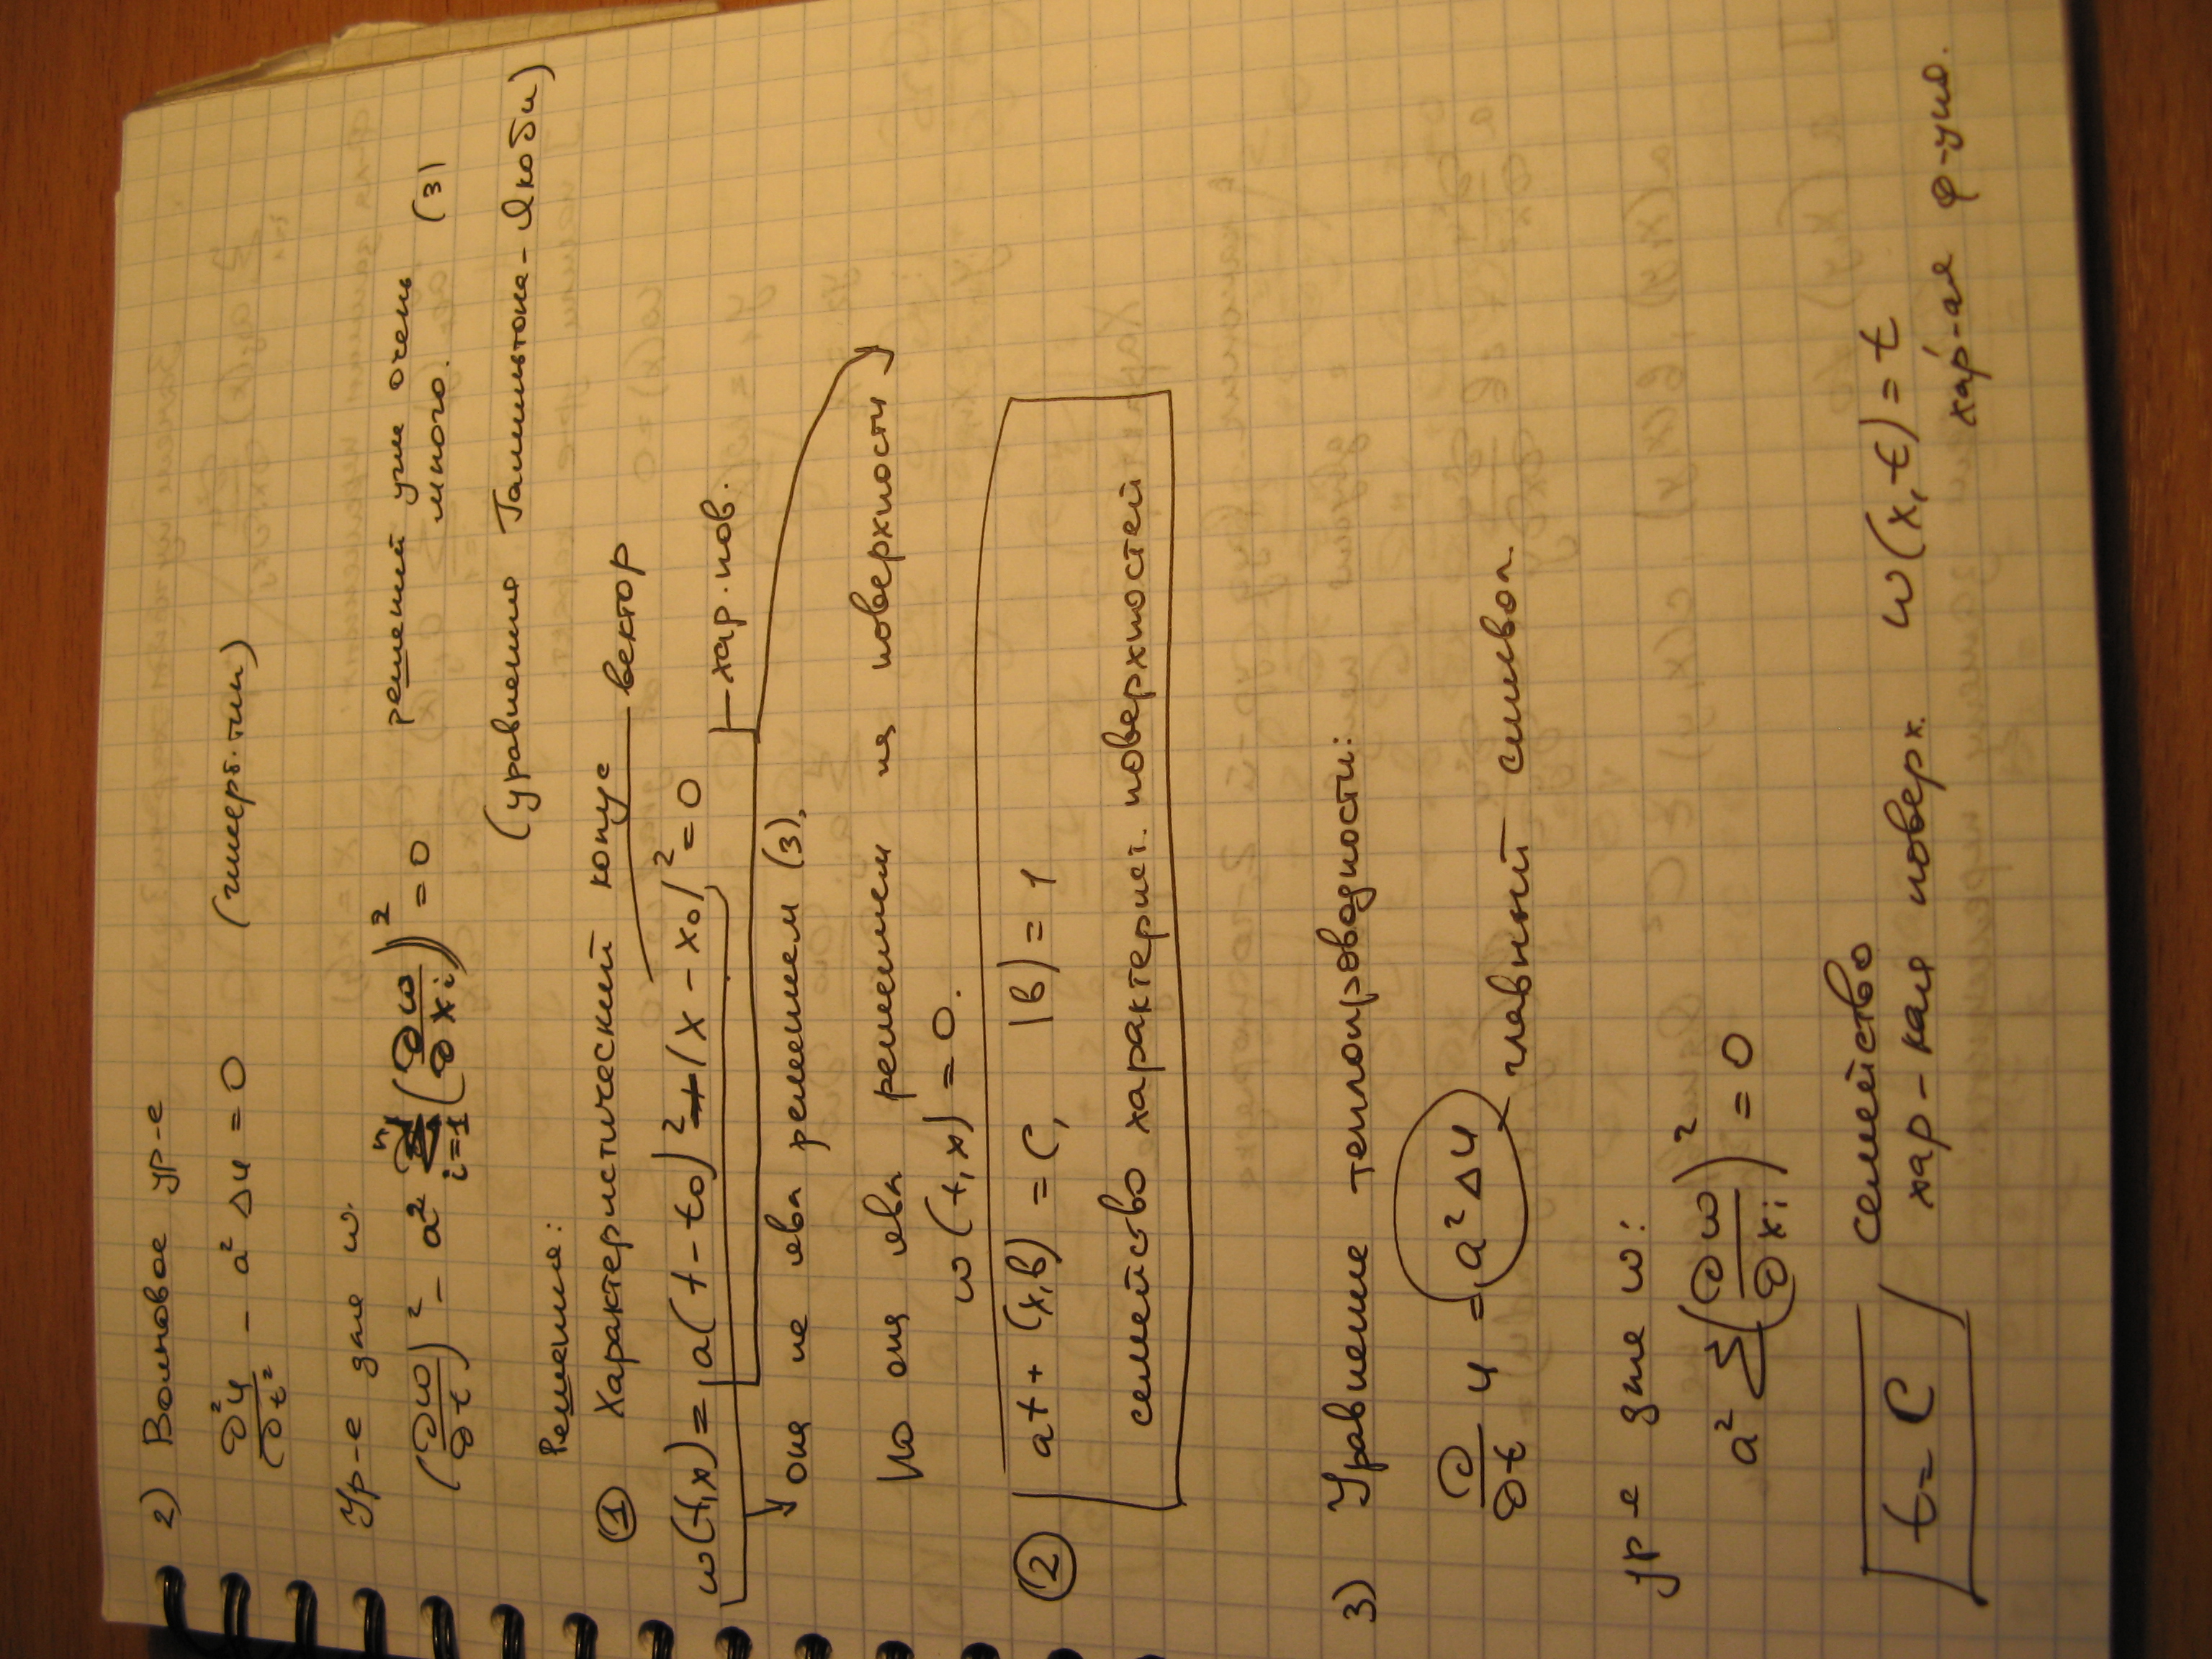 2) Волновое ур-е
∂²u/∂t² - a² Δu = 0 (гиперб. тип)
Ур-е для ω.
(∂ω/∂t)² - a² ∑ⁿᵢ₌₁ (∂ω/∂xᵢ)² = 0 решений уже очень много. (3)
(уравнение Гамильтона-Якоби)
Решение:
① Характеристический конус вектор
ω(t,x) = a(t-t₀)² - |x-x₀|² = 0 - хар. пов.
она не явл решением (3),
Но она явл решением на поверхности
ω(t,x) = 0.
② at + (x,b) = C, |b| = 1
семейство характерист. поверхностей
3) Уравнение теплопроводности:
∂/∂t u = a² Δu главный символ
ур-е для ω:
a² ∑(∂ω/∂xᵢ)² = 0
t = C семейство хар-кая поверх. ω(x,t) = t
хар-ая ф-ция.